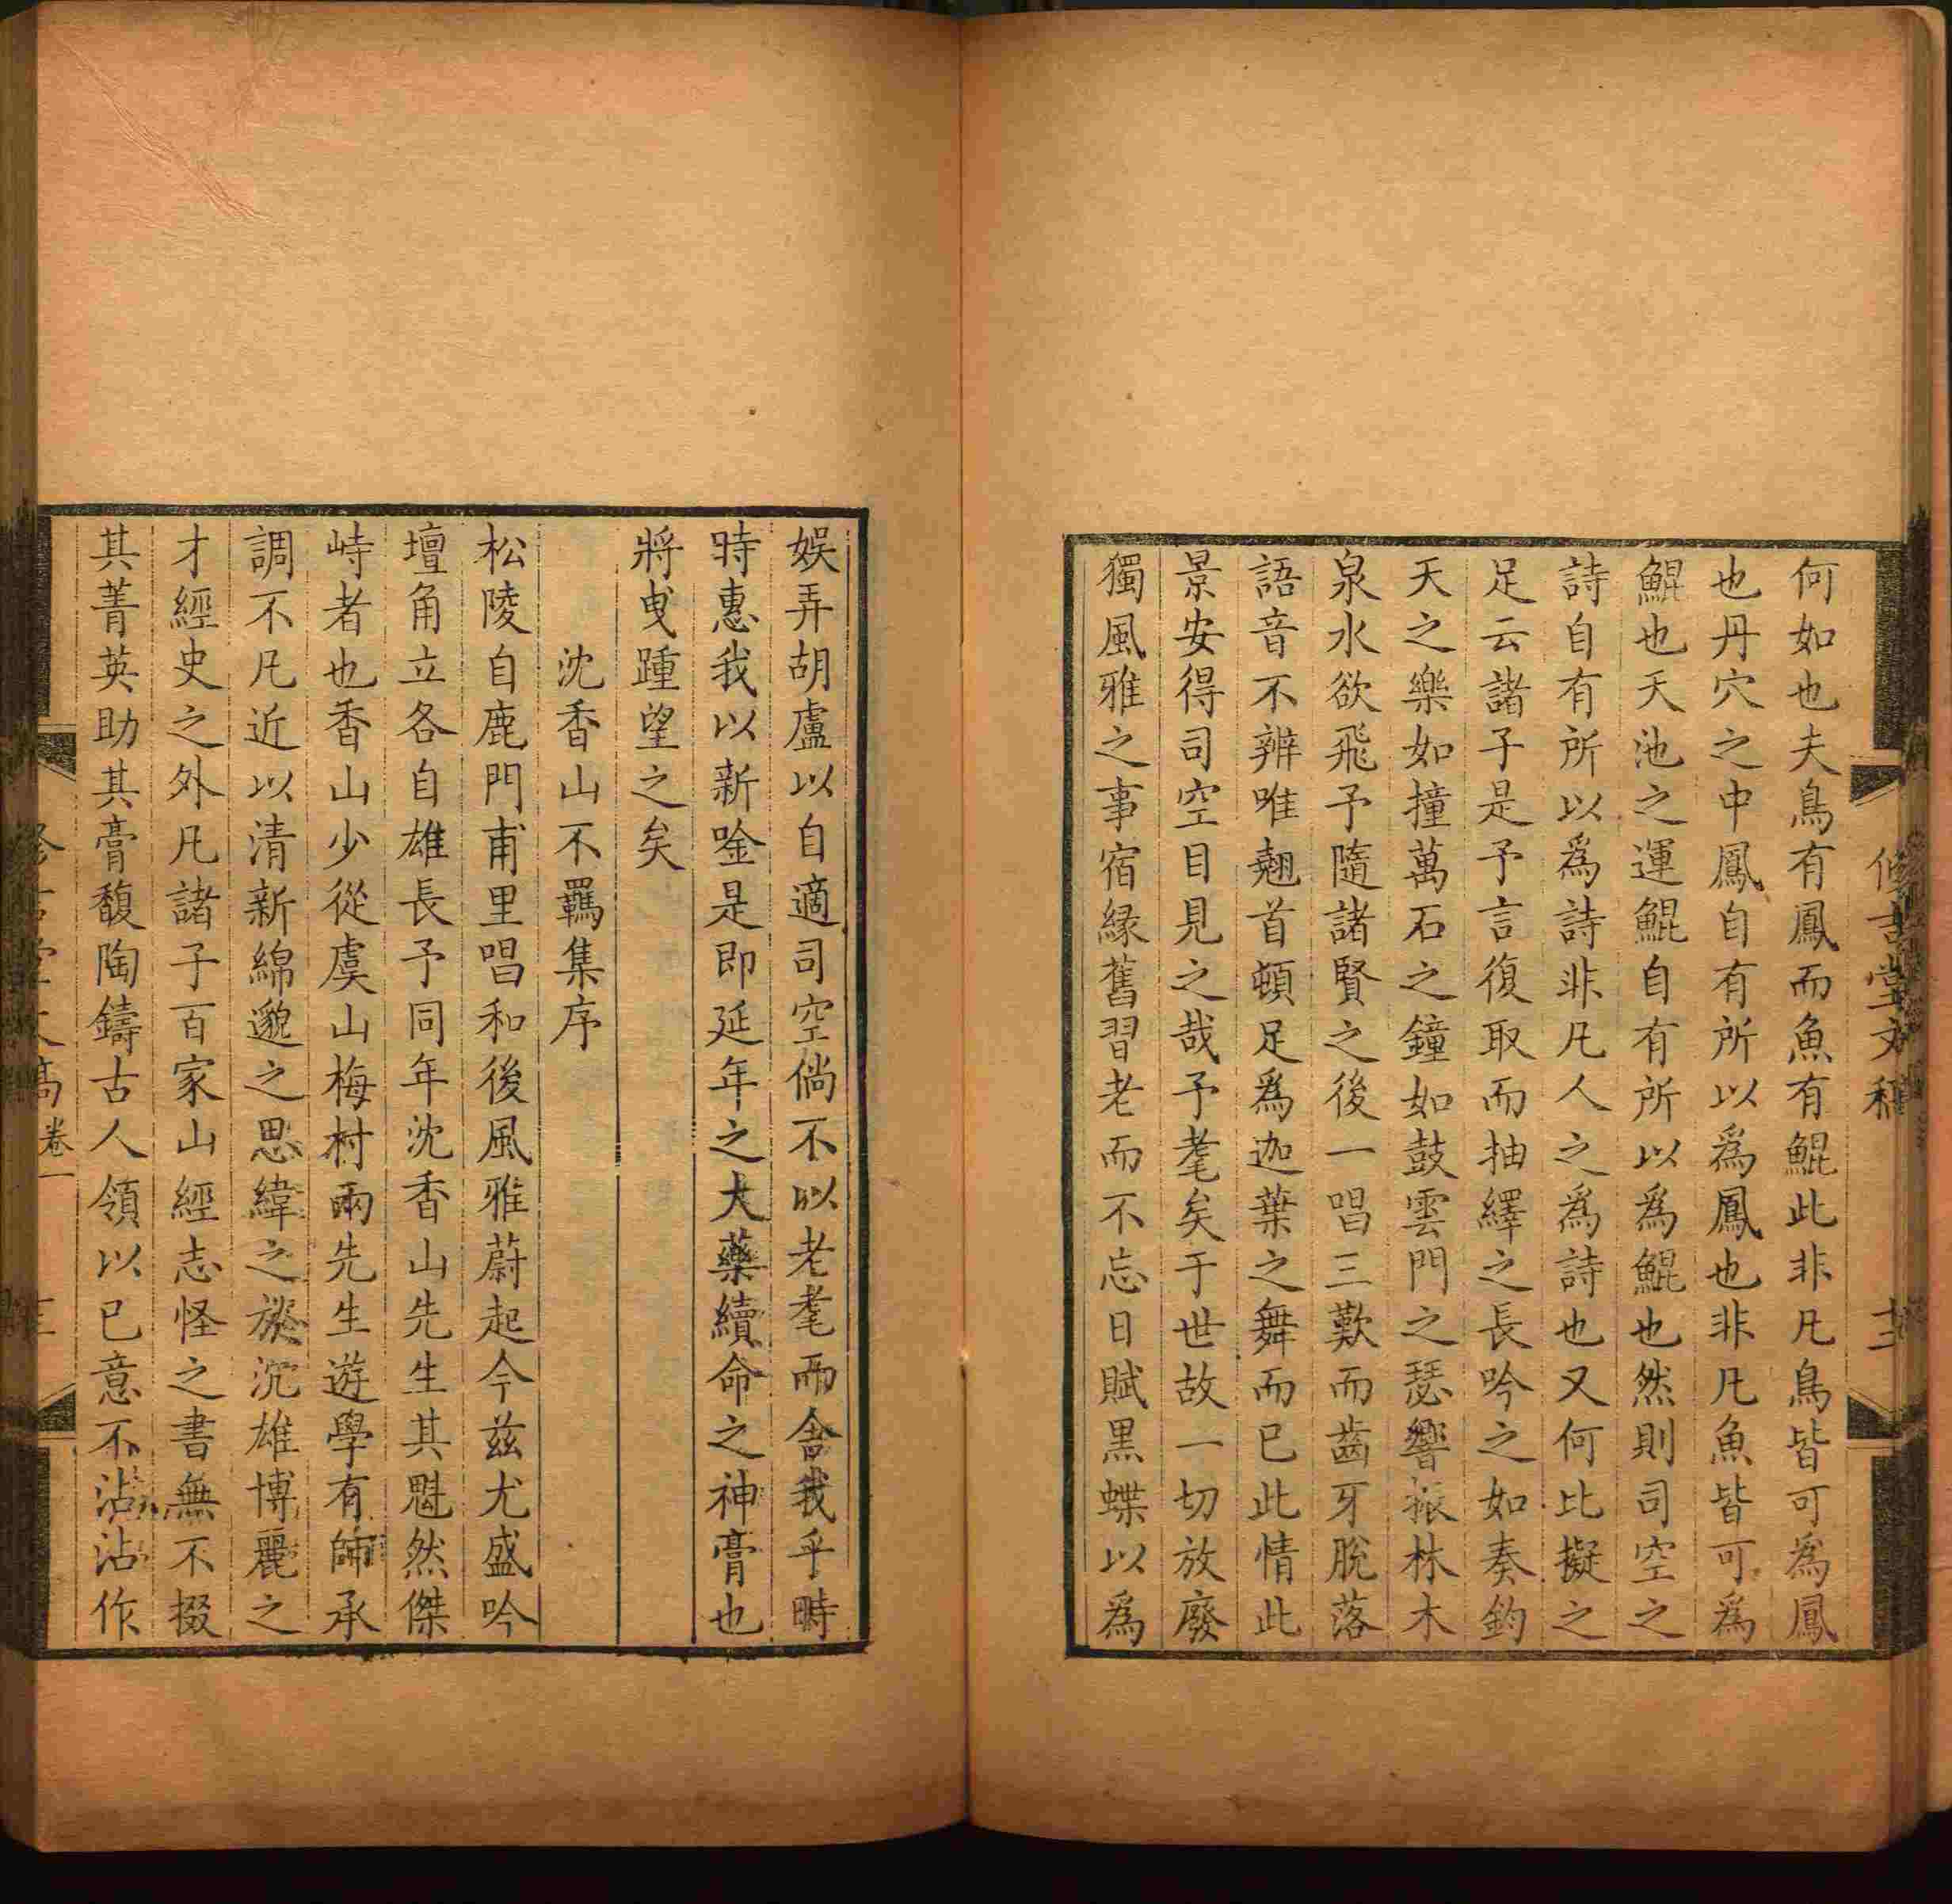 何如也夫鳥有鳳而魚有鯤此非凡鳥皆可為鳳
也丹穴之中鳳自有所以為鳳也非凡魚皆可為
鯤也天池之運鯤自有所以為鯤也然則司空之
詩自有所以為詩非凡人之為詩也又何比擬之
足云諸子是予言復取而抽繹之長吟之如奏鈞
天之樂如撞萬石之鐘如鼓雲門之瑟響振林木
泉水欲飛予隨諸賢之後一唱三歎而齒牙脫落
語音不辨唯翹首頓足為迦葉之舞而已此情此
景安得司空目見之哉予耄矣于世故一切放廢
獨風雅之事宿緣舊習老而不忘日賦黑蝶以為
堂文稿
十二
娛弄胡盧以自適司空倘不以老耄而舍我乎時
時惠我以新唫是即延年之大藥續命之神膏也
將曳踵望之矣
沈香山不羈集序
松陵自鹿門甫里唱和後風雅蔚起今茲尤盛吟
壇角立各自雄長予同年沈香山先生其魁然傑
峙者也香山少從虞山梅村兩先生遊學有師承
調不凡近以清新綿邈之思緯之以沉雄博麗之
才經史之外凡諸子百家山經志怪之書無不掇
其菁英助其膏馥陶鑄古人領以已意不沾沾作
卷一